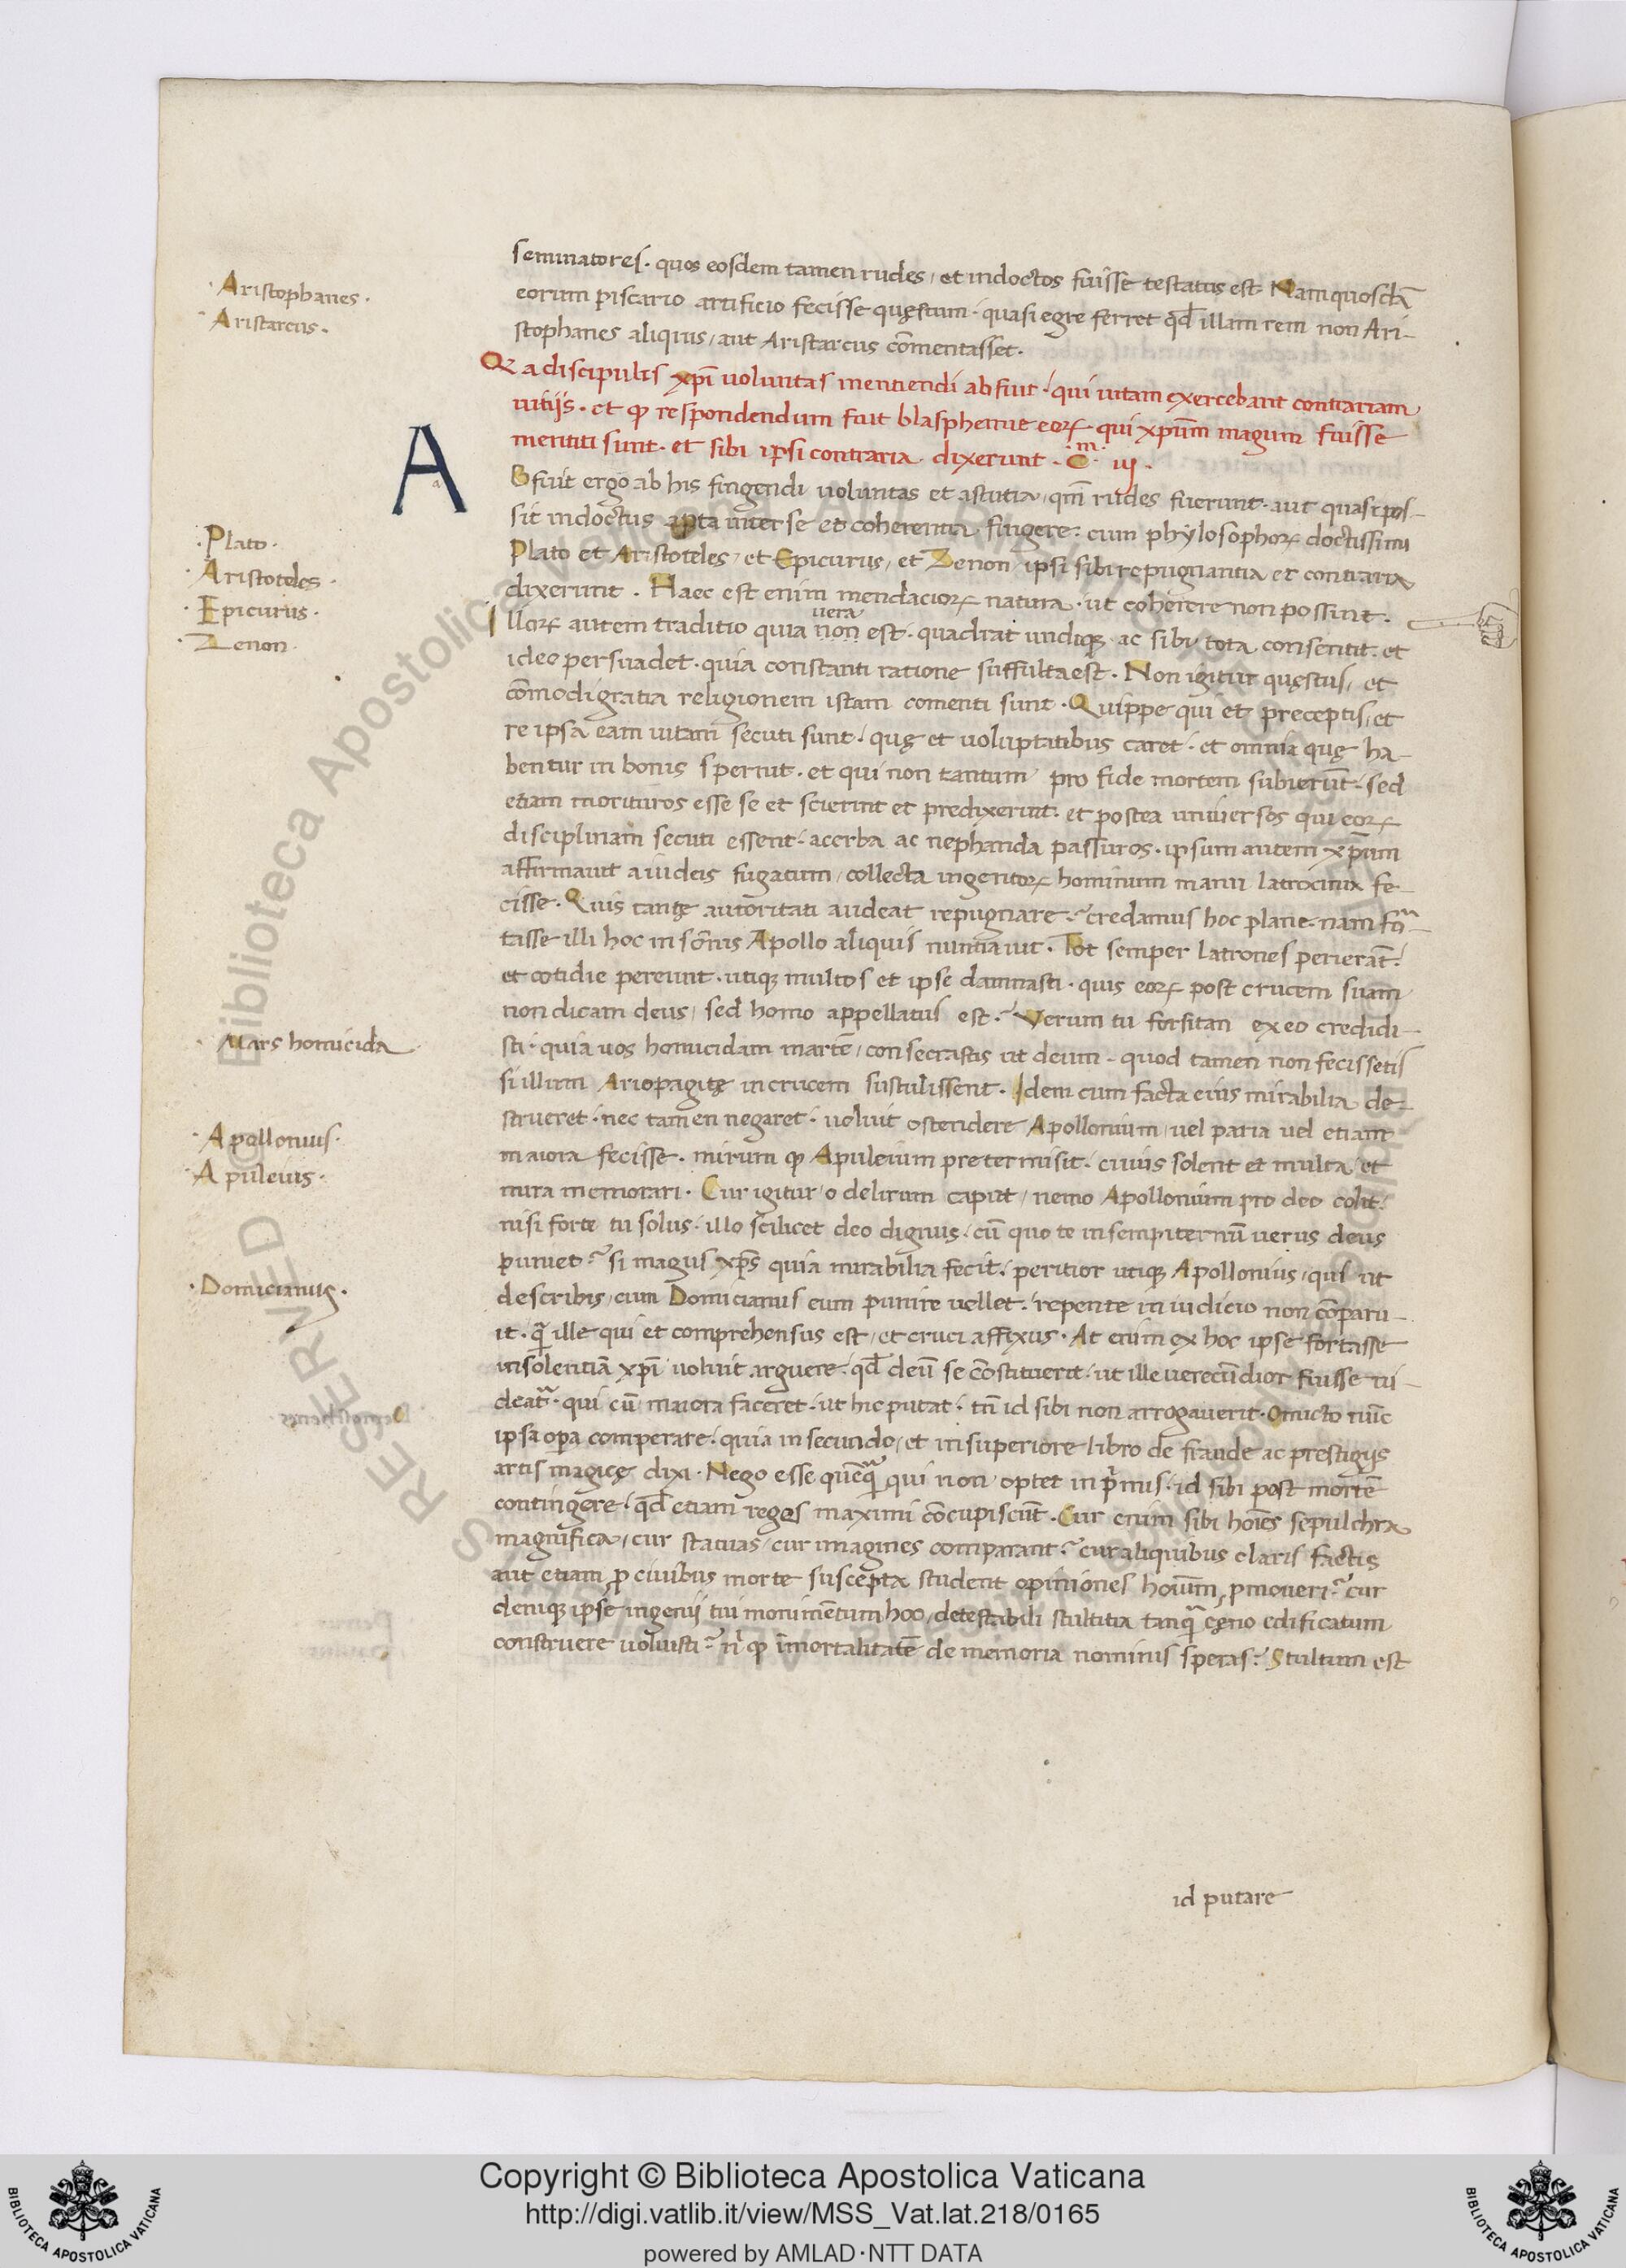 seminatores. quos eosdem tamen rudes, et indoctos fuisse testatus est. Nam quosdā
eorum piscario artificio fecisse quęstum. quasi egre ferret qđ illam rem non Ari-
stophanes aliquis, aut Aristarcus cōmentasset.
Q a discipulis xp̄i voluntas mentiendi abfuit. qui vitam exercebant contrariam
vitijs. et qꝫ respondendum fuit blasphemie eoꝝ. qui xp̄um magum fuisse
mentiti sunt. et sibi ipsi contraria dixerunt. C.m iij.
A Bfuit ergo ab his fingendi voluntas et astutia, qm̄ rudes fuerunt. aut quasi pos-
sit indoctus apta inter se et coherentia fingere: cum phylosophoꝝ doctissimi
Plato et Aristoteles, et Epicurus, et Zenon, ipsi sibi repugnantia et contraria
dixerint. Haec est enim mendacioꝝ natura. ut coherere non possint.
Illoꝝ autem traditio quia non vera est. quadrat undiqꝫ ac sibi tota consentit. et
ideo persuadet. quia constanti ratione suffulta est. Non igitur quęstus, et
cōmodi gratia religionem istam comenti sunt. Quippe qui et preceptis, et
re ipsa eam vitam secuti sunt. quę et voluptatibus caret. et omnia quę ha-
bentur in bonis spernit. et qui non tantum pro fide mortem subierūt. sed
etiam morituros esse se et scierint et predixerint. et postea universos qui eoꝝ
disciplinam secuti essent. acerba ac nephanda passuros. ipsum autem xp̄um
affirmavit a iudeis fugatum, collecta ingentoꝝ hominum manu latrocinia fe-
cisse. Quis tantę autoritati audeat repugnare? credamus hoc plane. nam for-
tasse illi hoc in somnis Apollo aliquis nuntiavit. Tot semper latrones perierāt.
et cotidie pereunt. utiqꝫ multos et ipse damnasti. quis eoꝝ post crucem suam
non dicam deus, sed homo appellatus est? Verum tu forsitan ex eo credidi-
sti. quia vos homicidam martē, consecrastis ut deum. quod tamen non fecissetis
si illum Ariopagitę in crucem sustulissent. Idem cum facta eius mirabilia de-
strueret. nec tamen negaret. voluit ostendere Apollonium, vel paria vel etiam
maiora fecisse. mirum qꝫ Apuleium pretermisit. cuius solent et multa, et
mira memorari. Cur igitur, o delirum caput, nemo Apollonium pro deo colit.
nisi forte tu solus. illo scilicet deo dignus. cū quo te in sempiternū verus deus
puniet? si magus xp̄s quia mirabilia fecit. peritior utiqꝫ Apollonius, qui ut
describis, cum Domicianus eum punire vellet. repente in iudicio non cōparu-
it. q̄ ille qui et comprehensus est, et cruci affixus. At enim ex hoc ipse fortasse
insolentiā xp̄i voluit arguere. qđ deū se cōstituerit. ut ille verecūdior fuisse vi-
deat̄. qui cū maiora faceret. ut hic putat. tn̄ id sibi non arrogaverit. Omicto nūc
ipsa opa comperare. quia in secundo, et in superiore libro de fraude ac prestigijs
artis magicę dixi. Nego esse quēq̄ qui non optet in p̄mis. id sibi post mortē
contingere. qđ etiam reges maximi cōcupiscūt. Cur enim sibi hoīes sepulchra
magnifica, cur statuas, cur imagines comparant? cur aliquibus claris factis
aut etiam ꝓ civibus morte suscepta student opiniones hoīum pmoveri? cur
deniqꝫ ipse ingenij tui monimētum hoc, detestabili stultitia tanq̄ cęno edificatum
construere voluisti? n̄ qꝫ īmortalitatē de memoria nominis speras? Stultum est
id putare
.Aristophanes.
.Aristarcus.
.Plato.
.Aristoteles.
.Epicurus.
.Zenon.
Mars homicida
.Apollonius.
.Apuleius.
.Domicianus.
Biblioteca Apostolica Vaticana
Copyright © Biblioteca Apostolica Vaticana
http://digi.vatlib.it/view/MSS_Vat.lat.218/0165
powered by AMLAD·NTT DATA
BIBLIOTECA APOSTOLICA VATICANA
BIBLIOTECA APOSTOLICA VATICANA